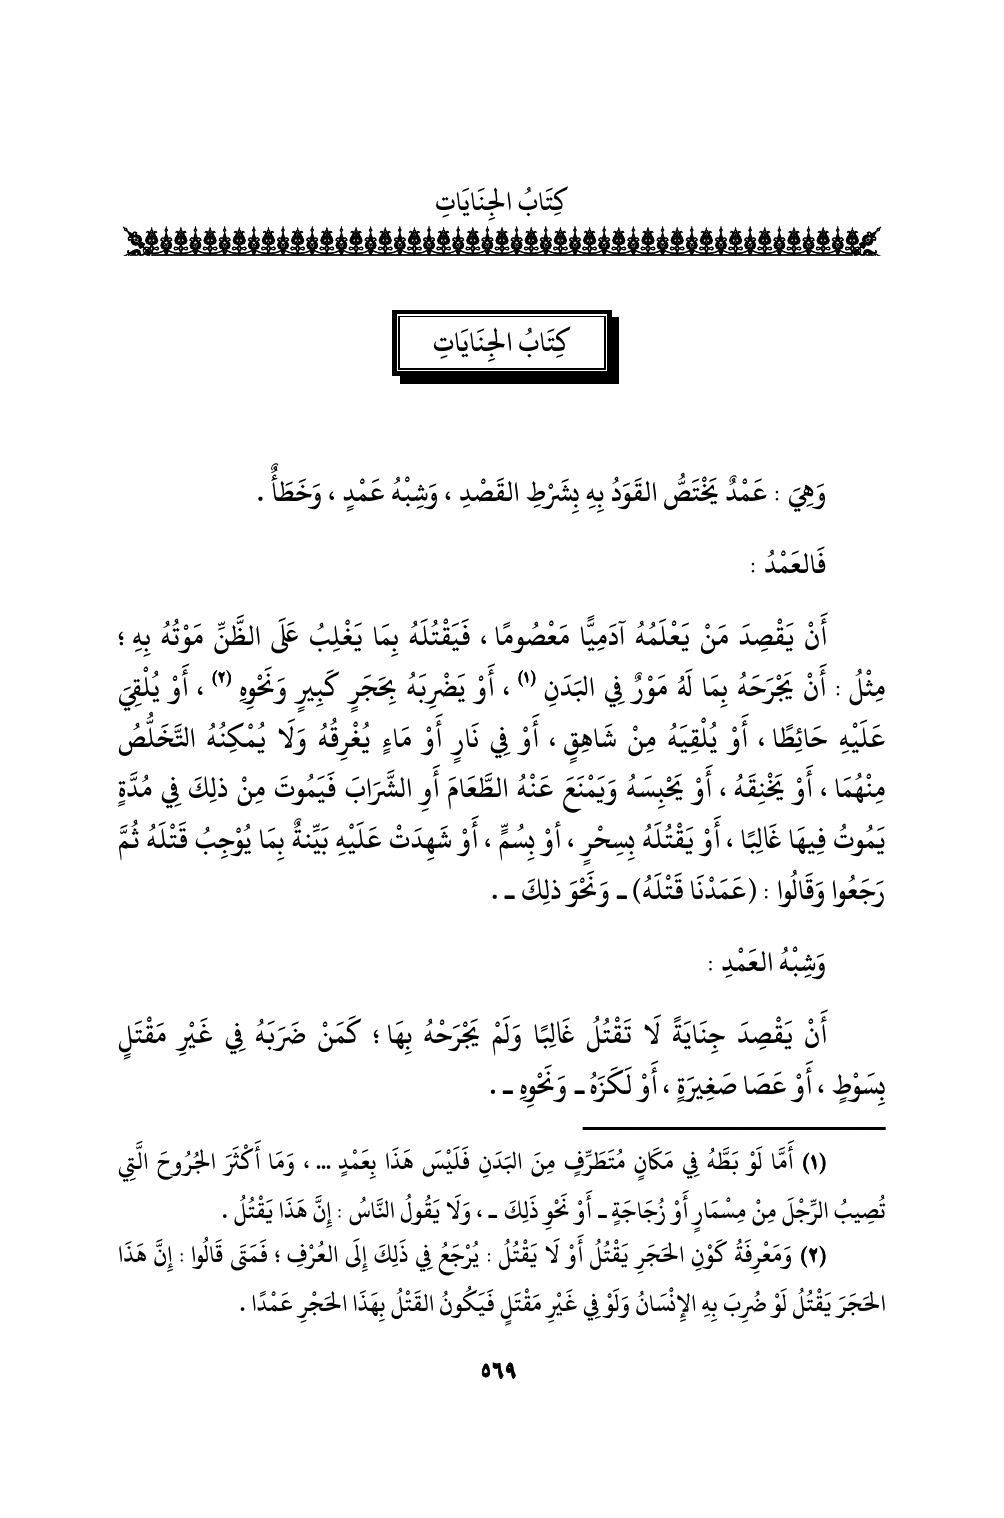 كِتَابُ الجِنَايَاتِ
كِتَابُ الجِنَايَاتِ
وَهِيَ : عَمْدٌ يَخْتَصُّ القَوَدُ بِهِ بِشَرْطِ القَصْدِ ، وَشِبْهُ عَمْدٍ ، وَخَطَأٌ .
فَالعَمْدُ :
أَنْ يَقْصِدَ مَنْ يَعْلَمُهُ آدَمِيًّا مَعْصُومًا ، فَيَقْتُلَهُ بِمَا يَغْلِبُ عَلَى الظَّنِّ مَوْتُهُ بِهِ ؛
مِثْلُ : أَنْ يَجْرَحَهُ بِمَا لَهُ مَوْرٌ فِي البَدَنِ (١) ، أَوْ يَضْرِبَهُ بِحَجَرٍ كَبِيرٍ وَنَحْوِهِ (٢) ، أَوْ يُلْقِيَ
عَلَيْهِ حَائِطًا ، أَوْ يُلْقِيَهُ مِنْ شَاهِقٍ ، أَوْ فِي نَارٍ أَوْ مَاءٍ يُغْرِقُهُ وَلَا يُمْكِنُهُ التَّخَلُّصُ
مِنْهُمَا ، أَوْ يَخْنِقَهُ ، أَوْ يَحْبِسَهُ وَيَمْنَعَ عَنْهُ الطَّعَامَ أَوِ الشَّرَابَ فَيَمُوتَ مِنْ ذلِكَ فِي مُدَّةٍ
يَمُوتُ فِيهَا غَالِبًا ، أَوْ يَقْتُلَهُ بِسِحْرٍ ، أوْ بِسُمٍّ ، أَوْ شَهِدَتْ عَلَيْهِ بَيِّنةٌ بِمَا يُوْجِبُ قَتْلَهُ ثُمَّ
رَجَعُوا وَقَالُوا : (عَمَدْنَا قَتْلَهُ) ـ وَنَحْوَ ذلِكَ ـ .
وَشِبْهُ العَمْدِ :
أَنْ يَقْصِدَ جِنَايَةً لَا تَقْتُلُ غَالِبًا وَلَمْ يَجْرَحْهُ بِهَا ؛ كَمَنْ ضَرَبَهُ فِي غَيْرِ مَقْتَلٍ
بِسَوْطٍ ، أَوْ عَصَا صَغِيرَةٍ ، أَوْ لَكَزَهُ ـ وَنَحْوِهِ ـ .
(١) أَمَّا لَوْ بَطَّهُ فِي مَكَانٍ مُتَطَرِّفٍ مِنَ البَدَنِ فَلَيْسَ هَذَا بِعَمْدٍ ... ، وَمَا أَكْثَرَ الجُرُوحَ الَّتِي
تُصِيبُ الرِّجْلَ مِنْ مِسْمَارٍ أَوْ زُجَاجَةٍ ـ أَوْ نَحْوِ ذَلِكَ ـ ، وَلَا يَقُولُ النَّاسُ : إِنَّ هَذَا يَقْتُلُ .
(٢) وَمَعْرِفَةُ كَوْنِ الحَجَرِ يَقْتُلُ أَوْ لَا يَقْتُلُ : يُرْجَعُ فِي ذَلِكَ إِلَى العُرْفِ ؛ فَمَتَى قَالُوا : إِنَّ هَذَا
الحَجَرَ يَقْتُلُ لَوْ ضُرِبَ بِهِ الإِنْسَانُ وَلَوْ فِي غَيْرِ مَقْتَلٍ فَيَكُونُ القَتْلُ بِهَذَا الحَجْرِ عَمْدًا .
٥٦٩